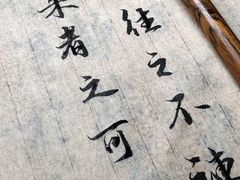 往之不諫
来者之可